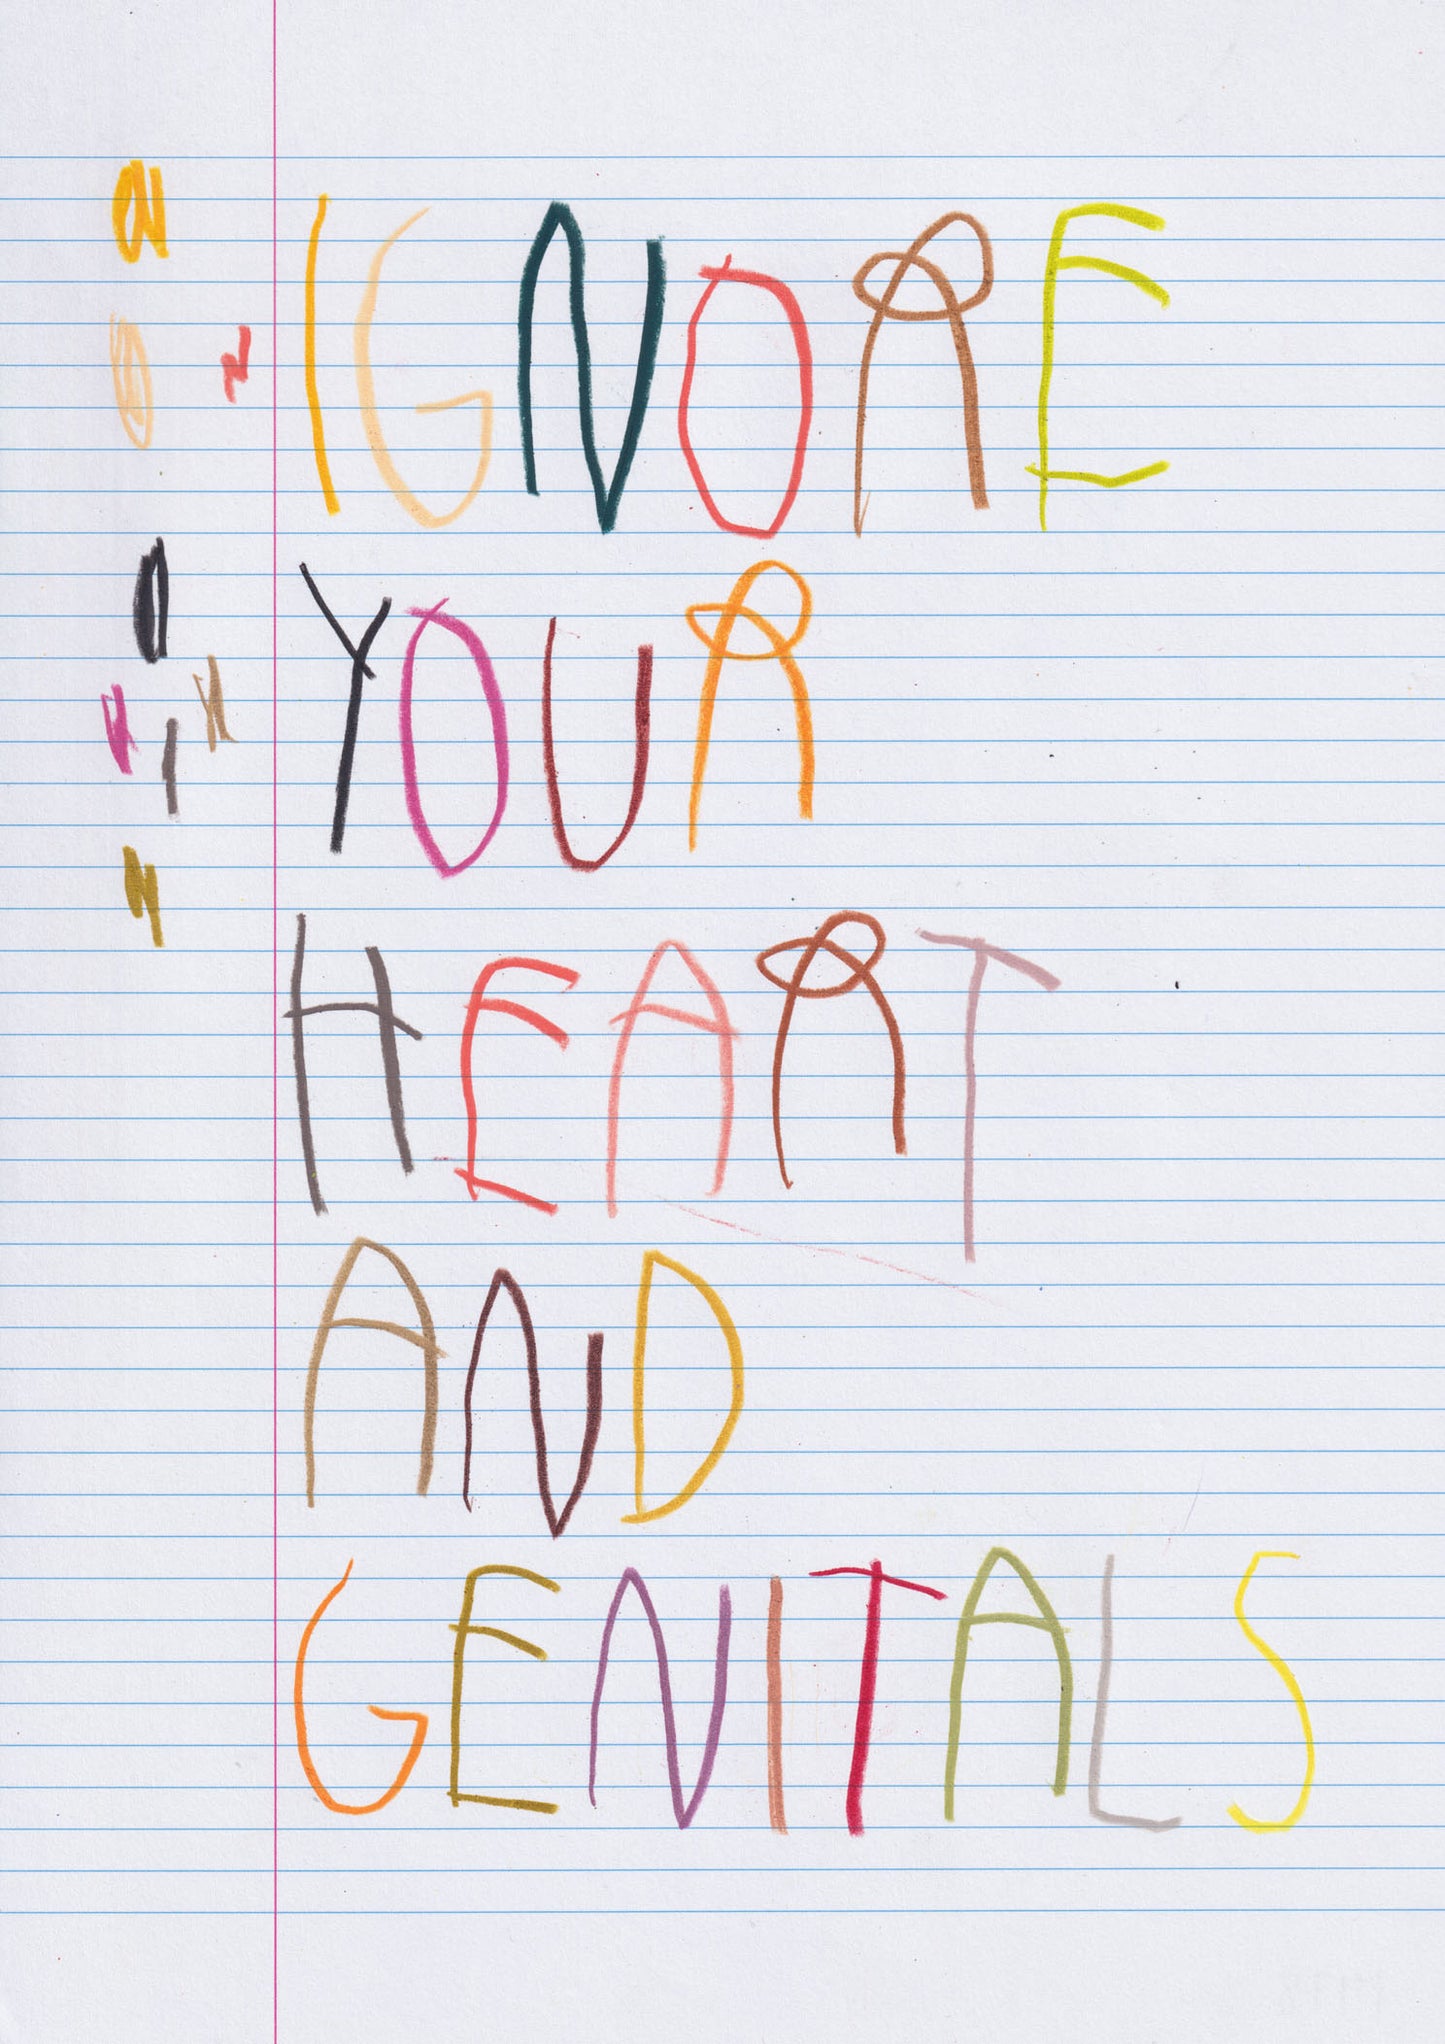 IGNORE
YOUR
HEART
AND
GENITALS